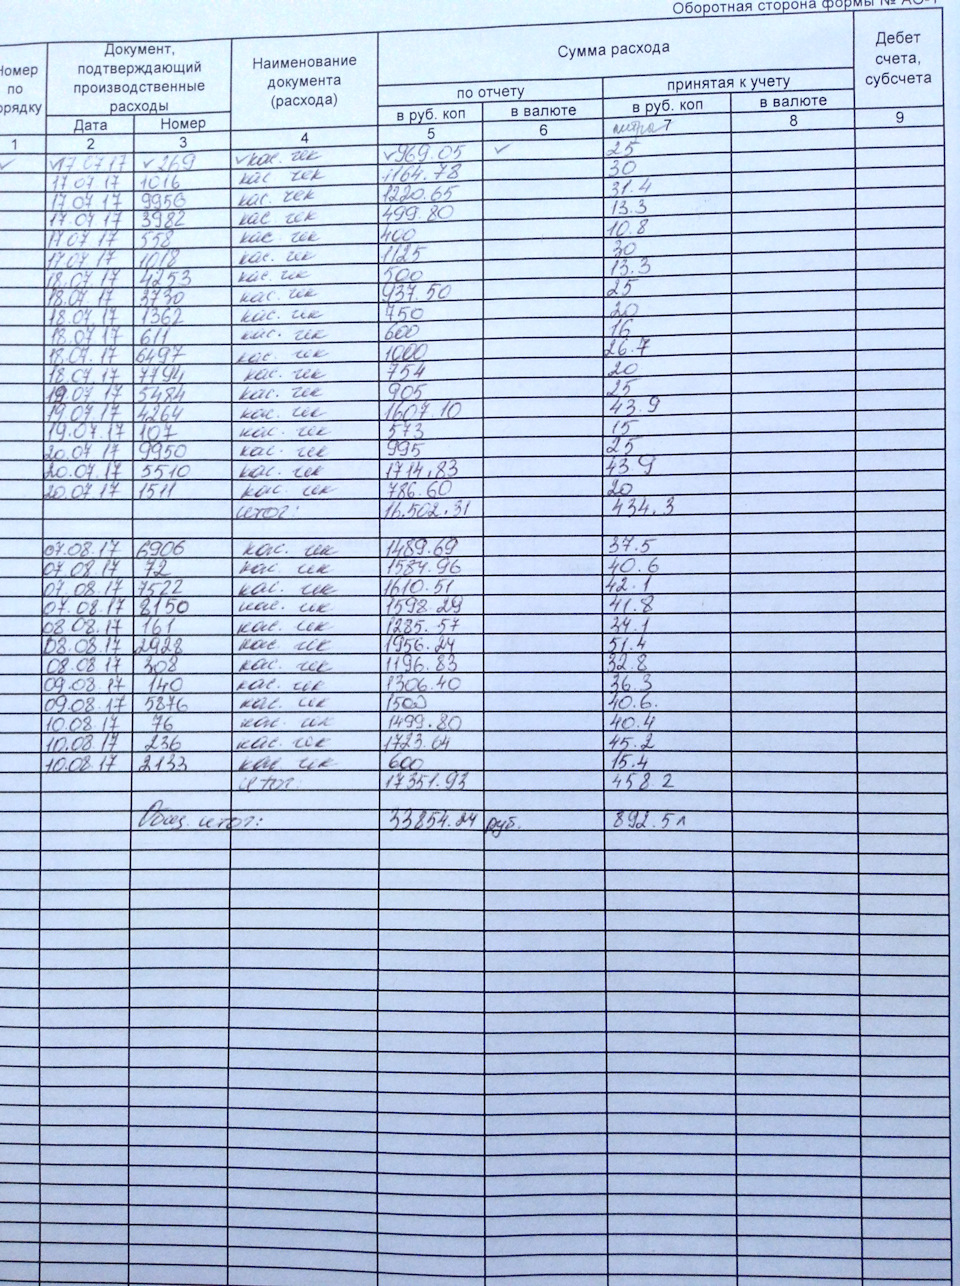 Оборотная сторона формы № АО-1
Номер по порядку
Документ, подтверждающий производственные расходы
Наименование документа (расхода)
Сумма расхода
Дебет счета, субсчета
по отчету
принятая к учету
Дата
Номер
в руб. коп
в валюте
в руб. коп
в валюте
1 2 3 4 5 6 литра 7 8 9
17.07.17 269 кас. чек 969.05 25
17 07 17 1016 кас чек 1164.78 30
17 07 17 9956 кас. чек 1220.65 31.4
17.07.17 3982 кас. чек 499.80 13.3
17 07 17 558 кас. чек 400 10.8
17.07 17 1018 кас. чек 1125 30
18.07 17 4253 кас. чек 500 13.3
18.07. 17 3730 кас. чек 937.50 25
18 07 17 1362 кас. чек 750 20
18.07 17 611 кас. чек 600 16
18.07. 17 6497 кас. чек 1000 26.7
18 07. 17 7794 кас. чек 754 20
19.07 17 5484 кас. чек 905 25
19.07 17 4264 кас. чек 1607.10 43.9
19.07.17 107 кас. чек 573 15
20.07 17 9950 кас. чек 995 25
20.07. 17 5510 кас. чек 1714.83 43 9
20.07 17 1511 кас. чек 786.60 20
итог: 16.502.31 434.3
07.08.17 6906 кас. чек 1489.69 37.5
07 08 17 72 кас. чек 1584.96 40.6
07. 08.17 7522 кас. чек 1610.51 42.1
07. 08.17 8150 кас. чек 1598.29 41.8
08 08. 17 161 кас. чек 1285.57 34.1
08.08.17 2928 кас. чек 1956.24 51.4
08.08 17 308 кас. чек 1196.83 32.8
09.08.17 140 кас. чек 1306.40 36.3
09.08.17 5876 кас. чек 1500 40.6.
10.08 17 76 кас. чек 1499.80 40.4
10.08.17 236 кас. чек 1723.64 45.2
10.08 17 2133 кас. чек 600 15.4
итог: 17351.93 458 2
Общ. итог: 33854.24 руб. 892.5 л